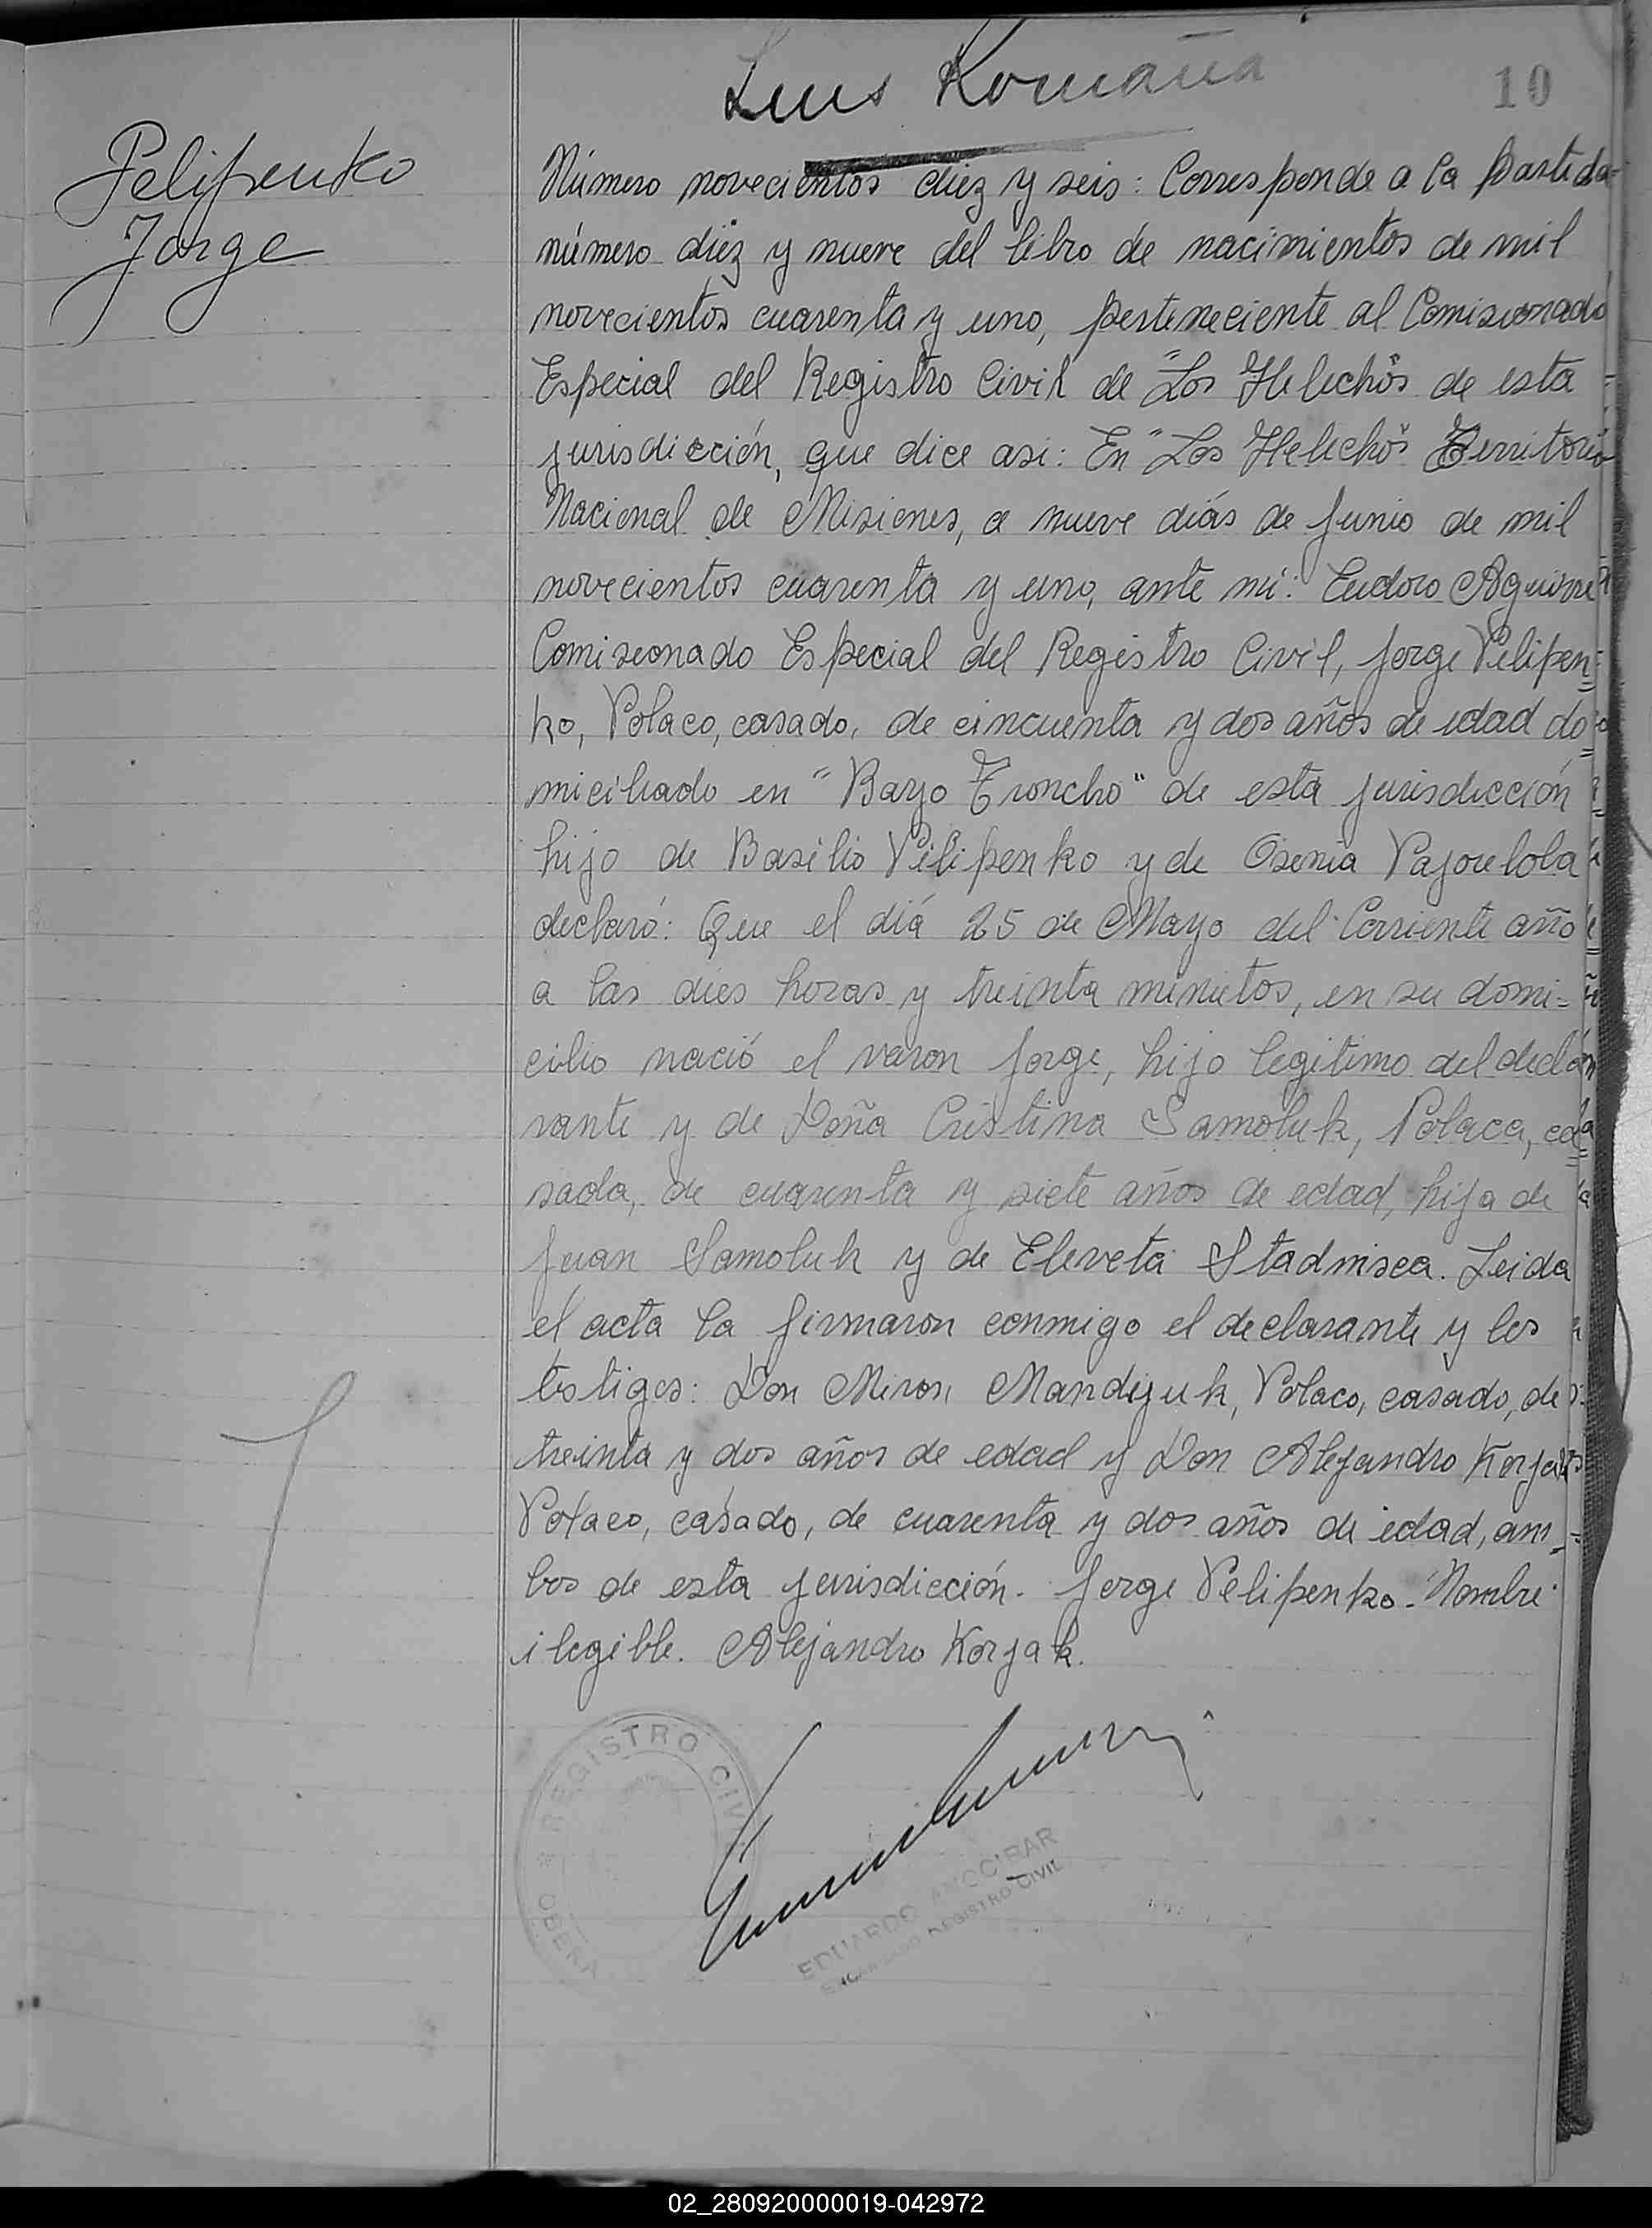 Luis Romaña
10
Pelipenko
Jorge
Número novecientos diez y seis: Corresponde a la partida
número diez y nueve del libro de nacimientos de mil
novecientos cuarenta y uno, perteneciente al Comisionado
Especial del Registro Civil de "Los Helechos" de esta
jurisdicción, que dice asi: En "Los Helechos" Territorio
Nacional de Misiones, a nueve días de junio de mil
novecientos cuarenta y uno, ante mi: Eudoro Aguirre
Comisionado Especial del Registro Civil, Jorge Pelipen=
ko, Polaco, casado, de cincuenta y dos años de edad do=
miciliado en "Bayo Troncho" de esta jurisdicción
hijo de Basilio Pelipenko y de Osenia Pajoulola
declaró: Que el día 25 de Mayo del Corriente año
a las dies horas y treinta minutos, en su domi=
cilio nació el varon Jorge, hijo legitimo del decla
rante y de Doña Cristina Samoluk, Polaca, ca=
sada, de cuarenta y siete años de edad, hija de
Juan Samoluk y de Eleveta Stadnisca. Leida
el acta la firmaron conmigo el declarante y los
testigos: Don Miron Mandyuk, Polaco, casado, de
treinta y dos años de edad y Don Alejandro Korjak
Polaco, casado, de cuarenta y dos años de edad, am=
bos de esta jurisdicción. Jorge Pelipenko. Nombre
ilegible. Alejandro Korjak.
REGISTRO CIVIL
OBERA
EDUARDO AMOCIBAR
ENCARGADO REGISTRO CIVIL
02_280920000019-042972